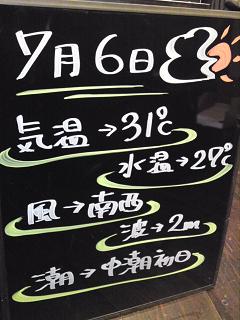 7月6日
気温→31℃
水温→27℃
風→南西
波→2m
潮→中潮初日